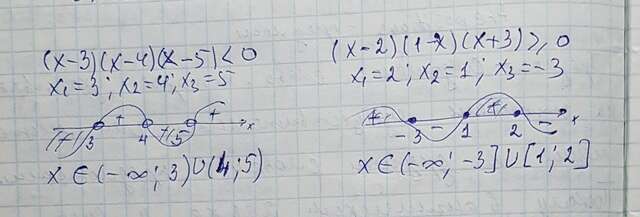 (x-3)(x-4)(x-5)<0
x₁=3; x₂=4; x₃=5
(-) 3 + 4 (-) 5 + x
x∈(-∞; 3)∪(4; 5)
(x-2)(1-x)(x+3)⩾0
x₁=2; x₂=1; x₃=-3
(+) -3 - 1 (+) 2 - x
x∈(-∞; -3]∪[1; 2]